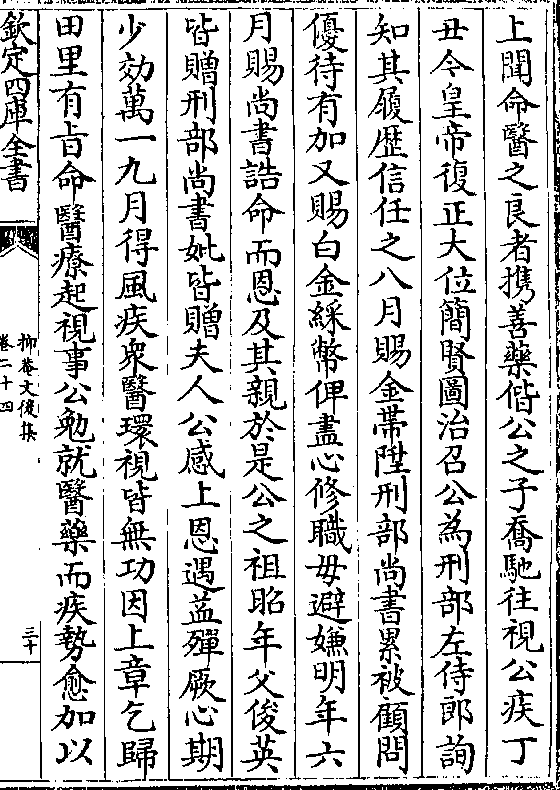 上聞命醫之良者携善藥偕公之子喬馳往視公疾丁
丑今皇帝復正大位簡賢圖治召公為刑部左侍郎詢
知其履歴信任之八月賜金帶陞刑部尚書累被顧問
優待有加又賜白金綵幣俾盡心修職毋避嫌明年六
月賜尚書誥命而恩及其親於是公之祖昭年父俊英
皆贈刑部尚書妣皆贈夫人公感上恩遇益殫厥心期
少效萬一九月得風疾衆醫環視皆無功因上章乞歸
田里有㫖命醫療起視事公勉就醫藥而疾勢愈加以
欽定四庫全書
抑菴文後集
卷二十四
三十